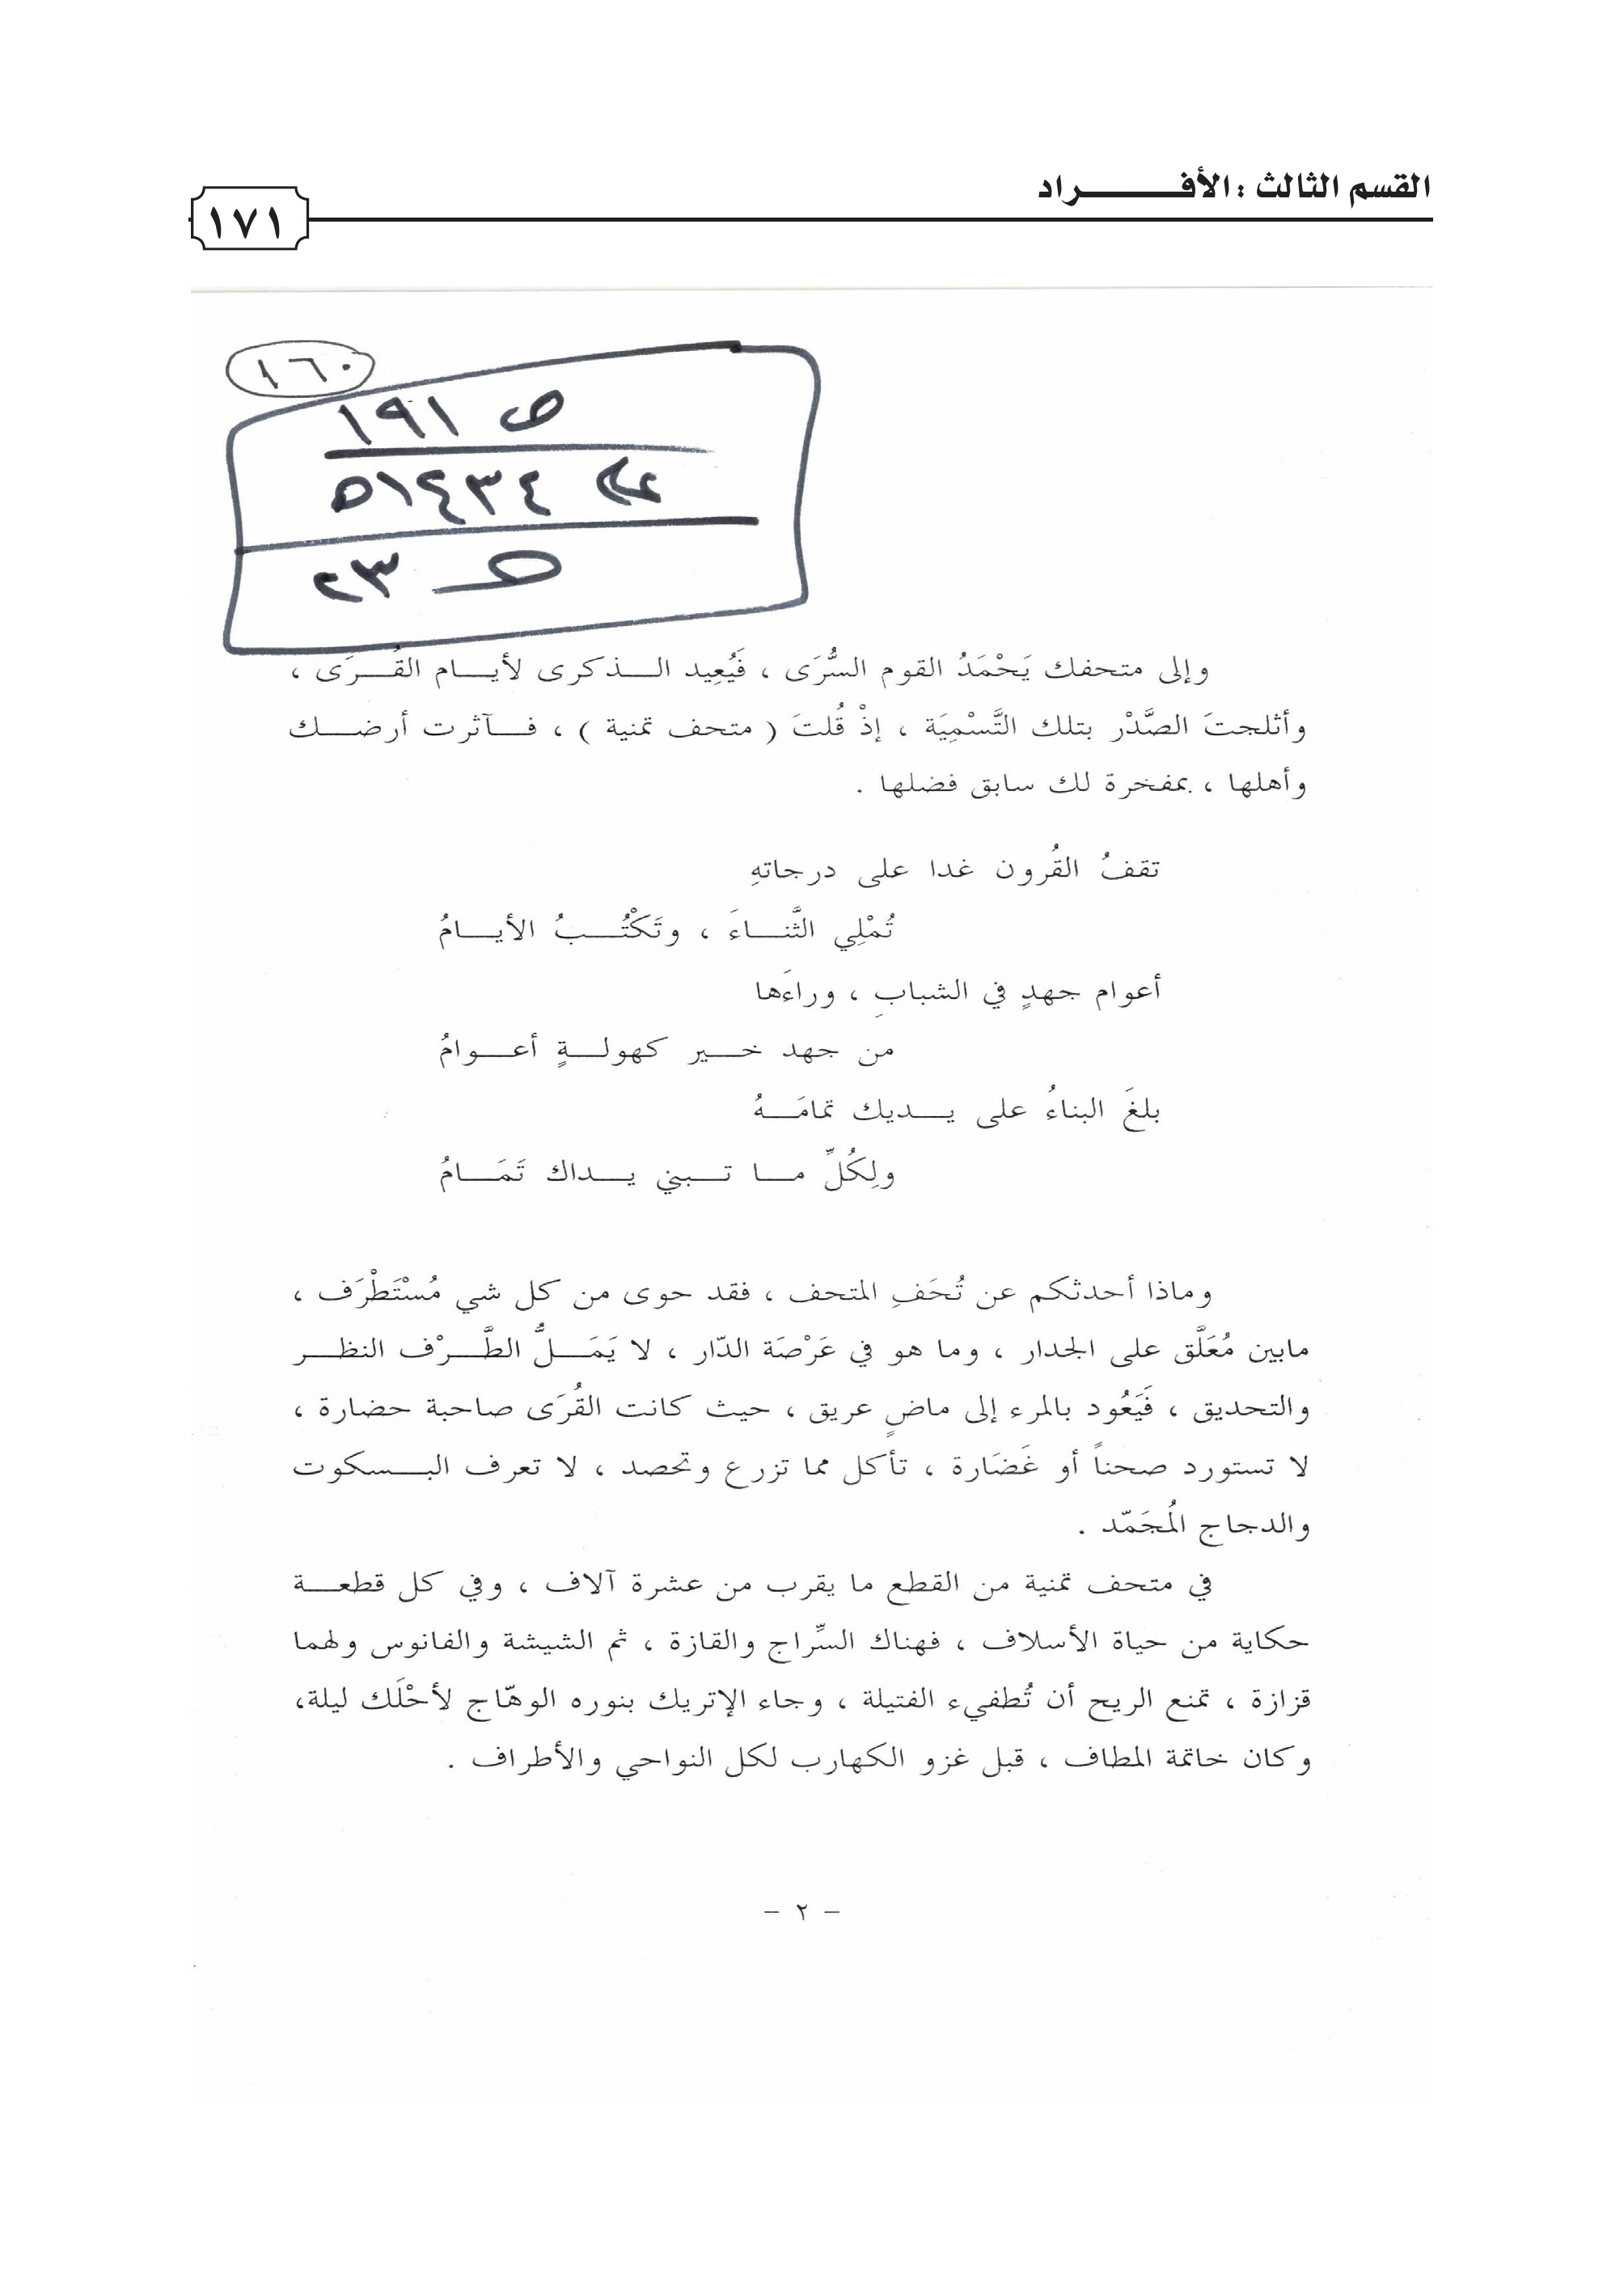 القسم الثالث : الأفـــــــــراد
١٧١
١٦٠
ص ١٩١
٥١٤٣٤
٢٣
وإلى متحفك يَحْمَدُ القوم السُّرَى ، فَيُعِيد الـذكرى لأيـام القُـرَى ،
وأثلجتَ الصَّدْر بتلك التَّسْمِيَة ، إذْ قُلتَ ( متحف تمنية ) ، فـآثرت أرضـك
وأهلها ، بمفخرة لك سابق فضلها .
تقفُ القُرون غدا على درجاتهِ
تُمْلِي الثَّنـاءَ ، وتَكْتُـبُ الأيـامُ
أعوام جهدٍ في الشبابِ ، وراءَها
من جهد خـير كهولـةٍ أعـوامُ
بلغَ البناءُ على يـديك تمامَـهُ
ولِكُلِّ مـا تـبني يـداك تَمَـامُ
وماذا أحدثكم عن تُحَفِ المتحف ، فقد حوى من كل شي مُسْتَطْرَف ،
مابين مُعَلَّق على الجدار ، وما هو في عَرْصَة الدّار ، لا يَمَـلُّ الطَّـرْف النظـر
والتحديق ، فَيَعُود بالمرء إلى ماضٍ عريق ، حيث كانت القُرَى صاحبة حضارة ،
لا تستورد صحناً أو غَضَارة ، تأكل مما تزرع وتحصد ، لا تعرف البـسكوت
والدجاج المُجَمّد .
في متحف تمنية من القطع ما يقرب من عشرة آلاف ، وفي كل قطعـة
حكاية من حياة الأسلاف ، فهناك السِّراج والقازة ، ثم الشيشة والفانوس ولهما
قزازة ، تمنع الريح أن تُطفيء الفتيلة ، وجاء الإتريك بنوره الوهّاج لأحْلَك ليلة،
وكان خاتمة المطاف ، قبل غزو الكهارب لكل النواحي والأطراف .
- ٢ -